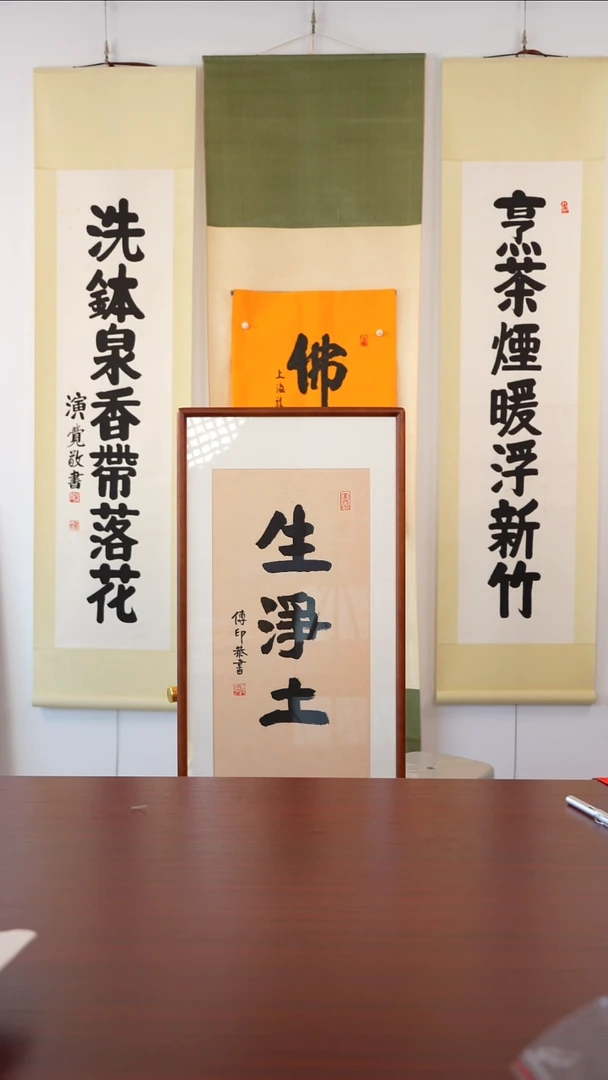 烹茶煙暖浮新竹
佛
上海
洗鉢泉香帶落花
演覺敬書
生淨土
傳印恭書